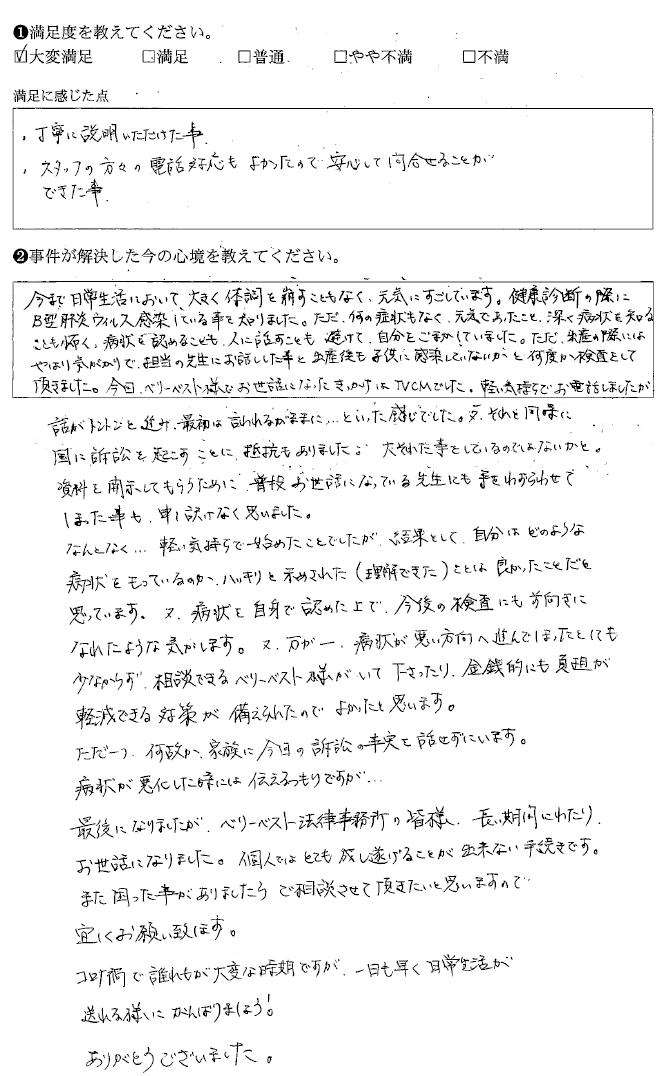 ❶満足度を教えてください。
☑大変満足 □満足 □普通 □やや不満 □不満
満足に感じた点
・丁寧に説明いただけた事
・スタッフの方々の電話対応もよかったので安心して問合せることが
できた事
❷事件が解決した今の心境を教えてください。
今まで日常生活において、大きく体調を崩すこともなく、元気にすごしています。健康診断の際に
B型肝炎ウィルス感染している事を知りました。ただ、何の症状もなく、元気であったこと、深く病状を知る
ことも怖く、病状を認めることも、人に話すことも避けて、自分をごまかしていました。ただ、出産の際には
やはり気がかりで、担当の先生にお話しした事と出産後も子供に感染していないかと何度か検査をして
頂きました。今回、ベリーベスト様でお世話になったきっかけはTVCMでした。軽い気持ちでお電話しましたが
話がトントンと進み、最初は言われるがままに…といった感じでした。又、それと同様に
国に訴訟を起こすことに、抵抗もありました。大それた事をしているのではないかと。
資料を開示してもらうために、普段お世話になっている先生にも手をわずらわせて
しまった事も、申し訳なく思いました。
なんとなく…軽い気持ちで始めたことでしたが、結果として、自分はどのような
病状をもっているのか、ハッキリと示めされた(理解できた)ことは良かったことだと
思っています。又、病状を自身で認めた上で、今後の検査にも前向きに
なれたような気がします。又、万が一、病状が悪い方向へ進んでしまったとしても
少なからず、相談できるベリーベスト様がいて下さったり、金銭的にも負担が
軽減できる対策が備えられたのでよかったと思います。
ただ一つ、何故か、家族に今回の訴訟の事実を話せずにいます。
病状が悪化した時には伝えるつもりですが…
最後になりましたが、ベリーベスト法律事務所の皆様、長い期間にわたり、
お世話になりました。個人ではとても成し遂げることが出来ない手続きです。
また困った事がありましたらご相談させて頂きたいと思いますので
宜しくお願い致します。
コロナ禍で誰れもが大変な時期ですが、一日も早く日常生活が
送れる様に がんばりましょう!
ありがとうございました。